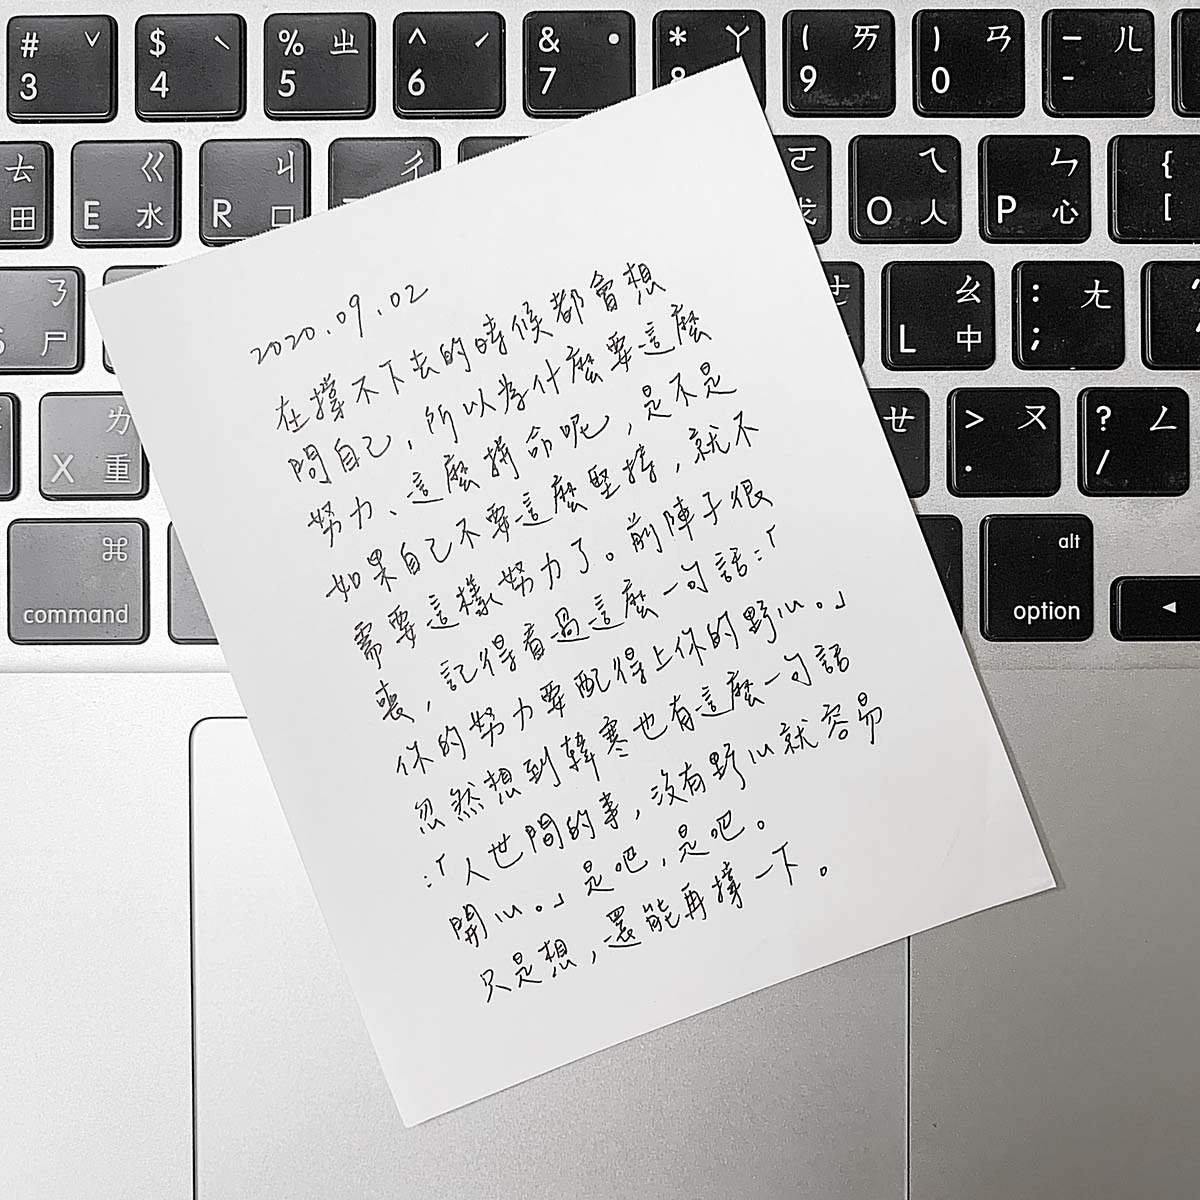 # ˇ
3
$ ˋ
4
% ㄓ
5
^ ˊ
6
& ˙
7
* ㄚ
8
( ㄞ
9
) ㄢ
0
– ㄦ
-
ㄊ
田
ㄍ
E 水
ㄐ
R 口
ㄔ
ㄛ
ㄟ
O 人
ㄣ
P 心
{
[
ㄋ
S 尸
ㄠ
L 中
: ㄤ
;
ㄌ
X 重
ㄝ
> ㄡ
.
? ㄥ
/
⌘
command
alt
option
◄
2020.09.02
在撐不下去的時候都會想
問自己，所以為什麼要這麼
努力、這麼拼命呢，是不是
如果自己不要這麼堅持，就不
需要這樣努力了。前陣子很
喪，記得看過這麼一句話：「
你的努力要配得上你的野心。」
忽然想到韓寒也有這麼一句話
：「人世間的事，沒有野心就容易
開心。」是吧，是吧。
只是想，還能再撐一下。